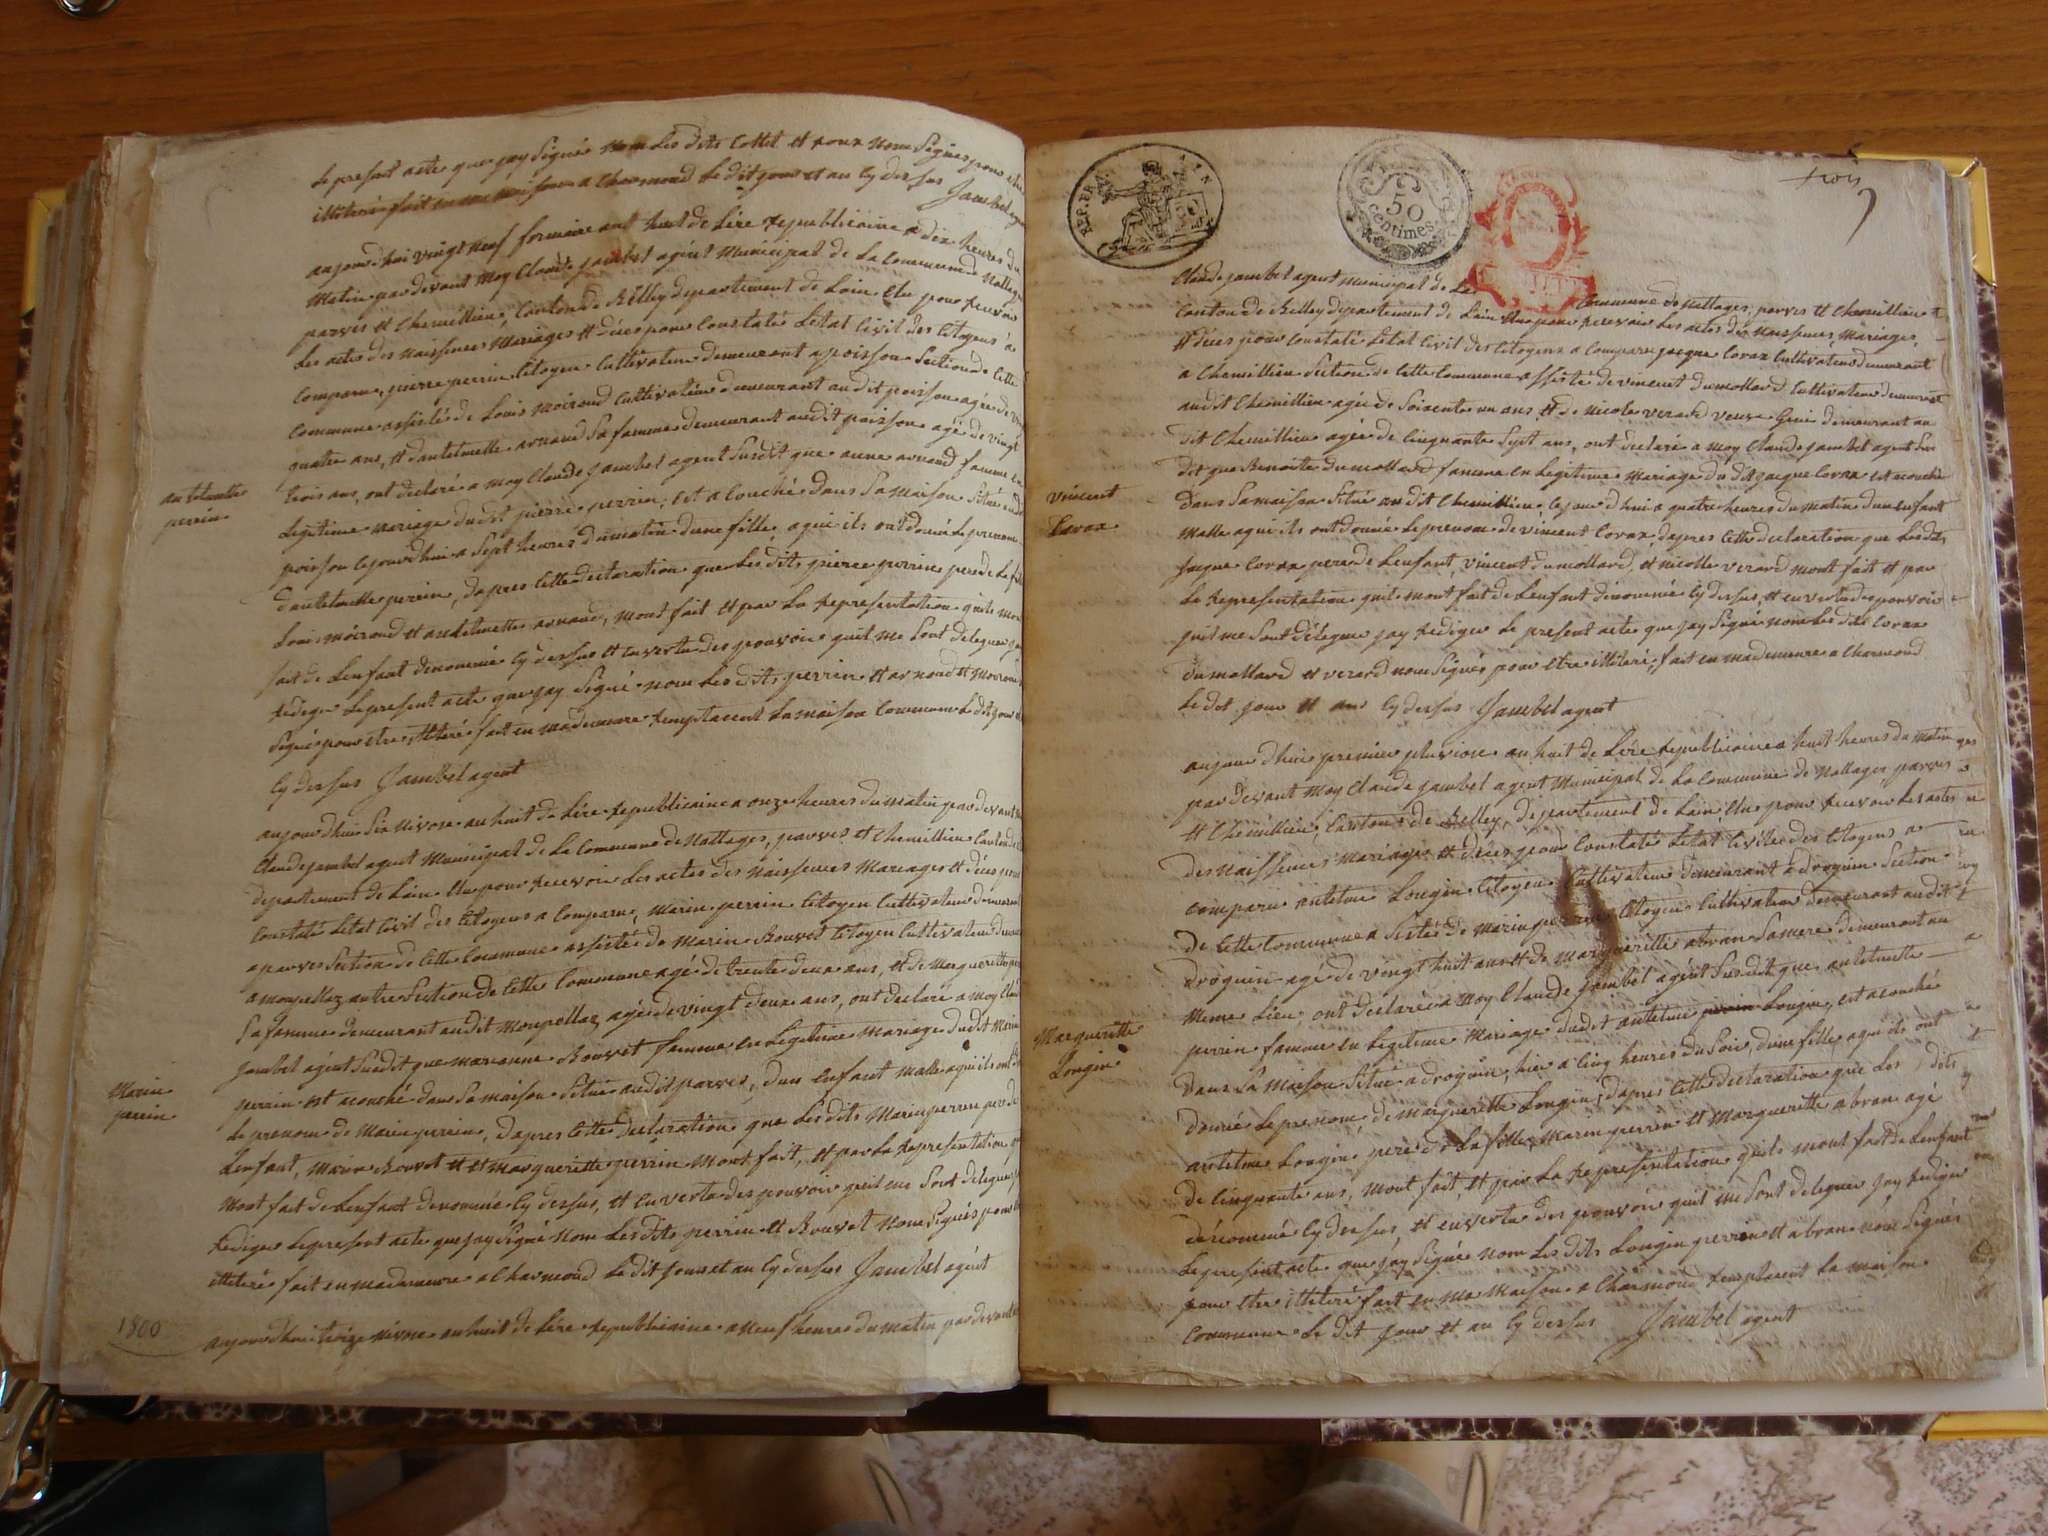 Le present acte que jay Signé Non Les dits Collet et roux Nom Signes pour
illiteré fait en ma maison a Charmond Le dit jour et an Cy dessus Jambel
aujourdhui vingt neuf frimaire ant huit de Lère republicaine a dix heures du
Matin par devant Moy Claude jambel agent Municipal de La Commune de Nattage
parves et Chemillieu, Canton de Belley departement de Lain Elu pour recevoir
Les actes des Naissences Mariages et déces pour Constaté Létat Civil des Citoyens a
Comparu, pierre perrin Citoyen Cultivateur demeurant a poisson Section de Cette
Commune assisté de Louis Moiroud Cultivateur demeurant au dit poisson agé de vingt
quatre ans, et dantelmette arnaud Sa famme demeurant audit poisson agé de vingt
trois ans, ont declaré a moy Claude Jambel agent Susdit que anne arnaud famme en
Legitime mariage dudit pierre perrin, est a Couché dans Sa maison Situé audit
poisson Cejourdhui a Sept heures du matin dune fille, a qui ils ont donné Le prenom
dantelmette perrin, dapres Cette declaration que Les dits pierre perrin pere de La fille
Louis moiroud et antelmette arnaud, mont fait et par La representation quils mon
fait de Lenfant denommé Cy dessus et en vertu des pouvoir quil me Sont delegué jay
redigé Le present acte que jay Signé non Les dits perrin et arnoud et Moiroud
Signé pour etre illiteré fait en ma demeure remplacent La maison Commune Le dit jour et
Cy dessus Jambel agent
antelmette
perrin
aujourdhui Six Nivose an huit de Lère republicaine a onze heures du matin par devant
Claude jambel agent Municipal de La Commune de Nattages, parves et Chemillieu Canton de
departement de Lain Elu pour recevoir Les actes des Naissences Mariages et déces pour
Constaté Létat Civil des Citoyens a Comparu, Marin perrin Citoyen Cultivateur demeurant
a parves Section de Cette Commune assisté de Marin Bouvet Citoyen Cultivateur
a monpellaz autre Section de Cette Commune agé de trente deux ans, et de Marguerette
Sa famme demeurant audit Monpellaz agé de vingt deux ans, ont declaré a moy
Jambel agent Susdit que marianne Bouvet famme en Legitime Mariage dudit Marin
perrin est acouché dans Sa maison Situé audit parves, dun enfant malle a qui ils ont
Le prenom de Marin perrin, dapres Cette declaration que Les dits Marin perrin pere de
Lenfant, Marin Bouvet et et Marguerette perrin Mont fait, et par La representation
Mont fait de Lenfant denommé Cy dessus, et en vertu des pouvoir quil me Sont delegué,
redigé Le present acte que jay Signé Non Les dits perrin et Bouvet Nom Signés pour
illiteré fait en ma demeure a Charmond Le dit jour et an Cy dessus Jambel agent
Marin
perrin
1800
aujourdhui treize nivose an huit de Lère republicaine a Neuf heures du matin par devant
REP. FRA.
50
Centimes
trois
Claude jambel agent Municipal de La Commune de Nattages, parves et Chemillieu
Canton de Belley departement de Lain Elu pour recevoir Les actes des Naissences, Mariages,
et déces pour Constaté Létat Civil des Citoyens a Comparu jacque Corax Cultivateur demeurant
a Chemillieu Section de Cette Commune assisté de vincent dumollard Cultivateur demeurant
audit Chemillieu agé de Soixente un ans et de Nicole verard veuve demeurant au
dit Chemillieu agée de Cinquante Sept ans, ont declaré a Moy Claude Jambel agent Sus
dit que Benoite dumollard famme en Legitime Mariage du dit jacque Corax est acouché
dans Sa maison Situé audit Chemillieu Cejourdhui a quatre heures du matin dun enfant
Malle a qui ils ont donné Le prenom de vincent Corax, dapres Cette declaration que Les dits
Jacque Corax pere de Lenfant, vincent dumollard, et Nicolle verard mont fait et par
La representation quils mont fait de Lenfant denommé Cy dessus, et en vertu des pouvoir
quil me Sont délegué jay redigé Le present acte que jay Signé non Les dits Corax
dumollard et verard nom Signés pour etre illiteré; fait en ma demeure a Charmond
Le dit jour et an Cy dessus Jambel agent
Vincent
Corax
aujourdhui premier pluviose an huit de Lère republicaine a huit heures du matin
par devant Moy Claude jambel agent Municipal de La Commune de Nattages parves
et Chemillieu, Canton de Belley, departement de Lain, Elu pour recevoir Les actes
des Naissences Mariages et déces pour Constaté Létat Civille des Citoyens a
comparu antelme Longin Citoyen Cultivateur demeurant à droquin Section
de Cette Commune a Sisté de Marin perrin Citoyen Cultivateur demeurant audit
droquin agé de vingt huit ans et de Margueritte abran Sa mere demeurant au
Meme Lieu, ont declaré a Moy Claude Jambel agent Susdit que antelmette
perrin famme en Legitime Mariage dudit antelme Longin, est acouché
dans Sa Maison Situé a droquin, hier a Cinq heures du Soir, dune fille, a qui ils ont
donné Le prenom, de Marguerette Longin, dapres Cette declaration que Les dits
antelme Longin pere de La fille, Marin perrin et Marguerette abran agé
de Cinquante ans, Mont fait, et par La representation quils mont fait de Lenfant
dénommé Cy dessus, et en vertu des pouvoir quil me Sont delegué jay redigé
Le present acte que jay Signé non Les dits Longin perrin et abran nom Signés
pour etre illiteré fait en Ma Maison a Charmond remplacent La maison
Commune Le dit jour et an Cy dessus Jambel agent
Marguerette
Longin